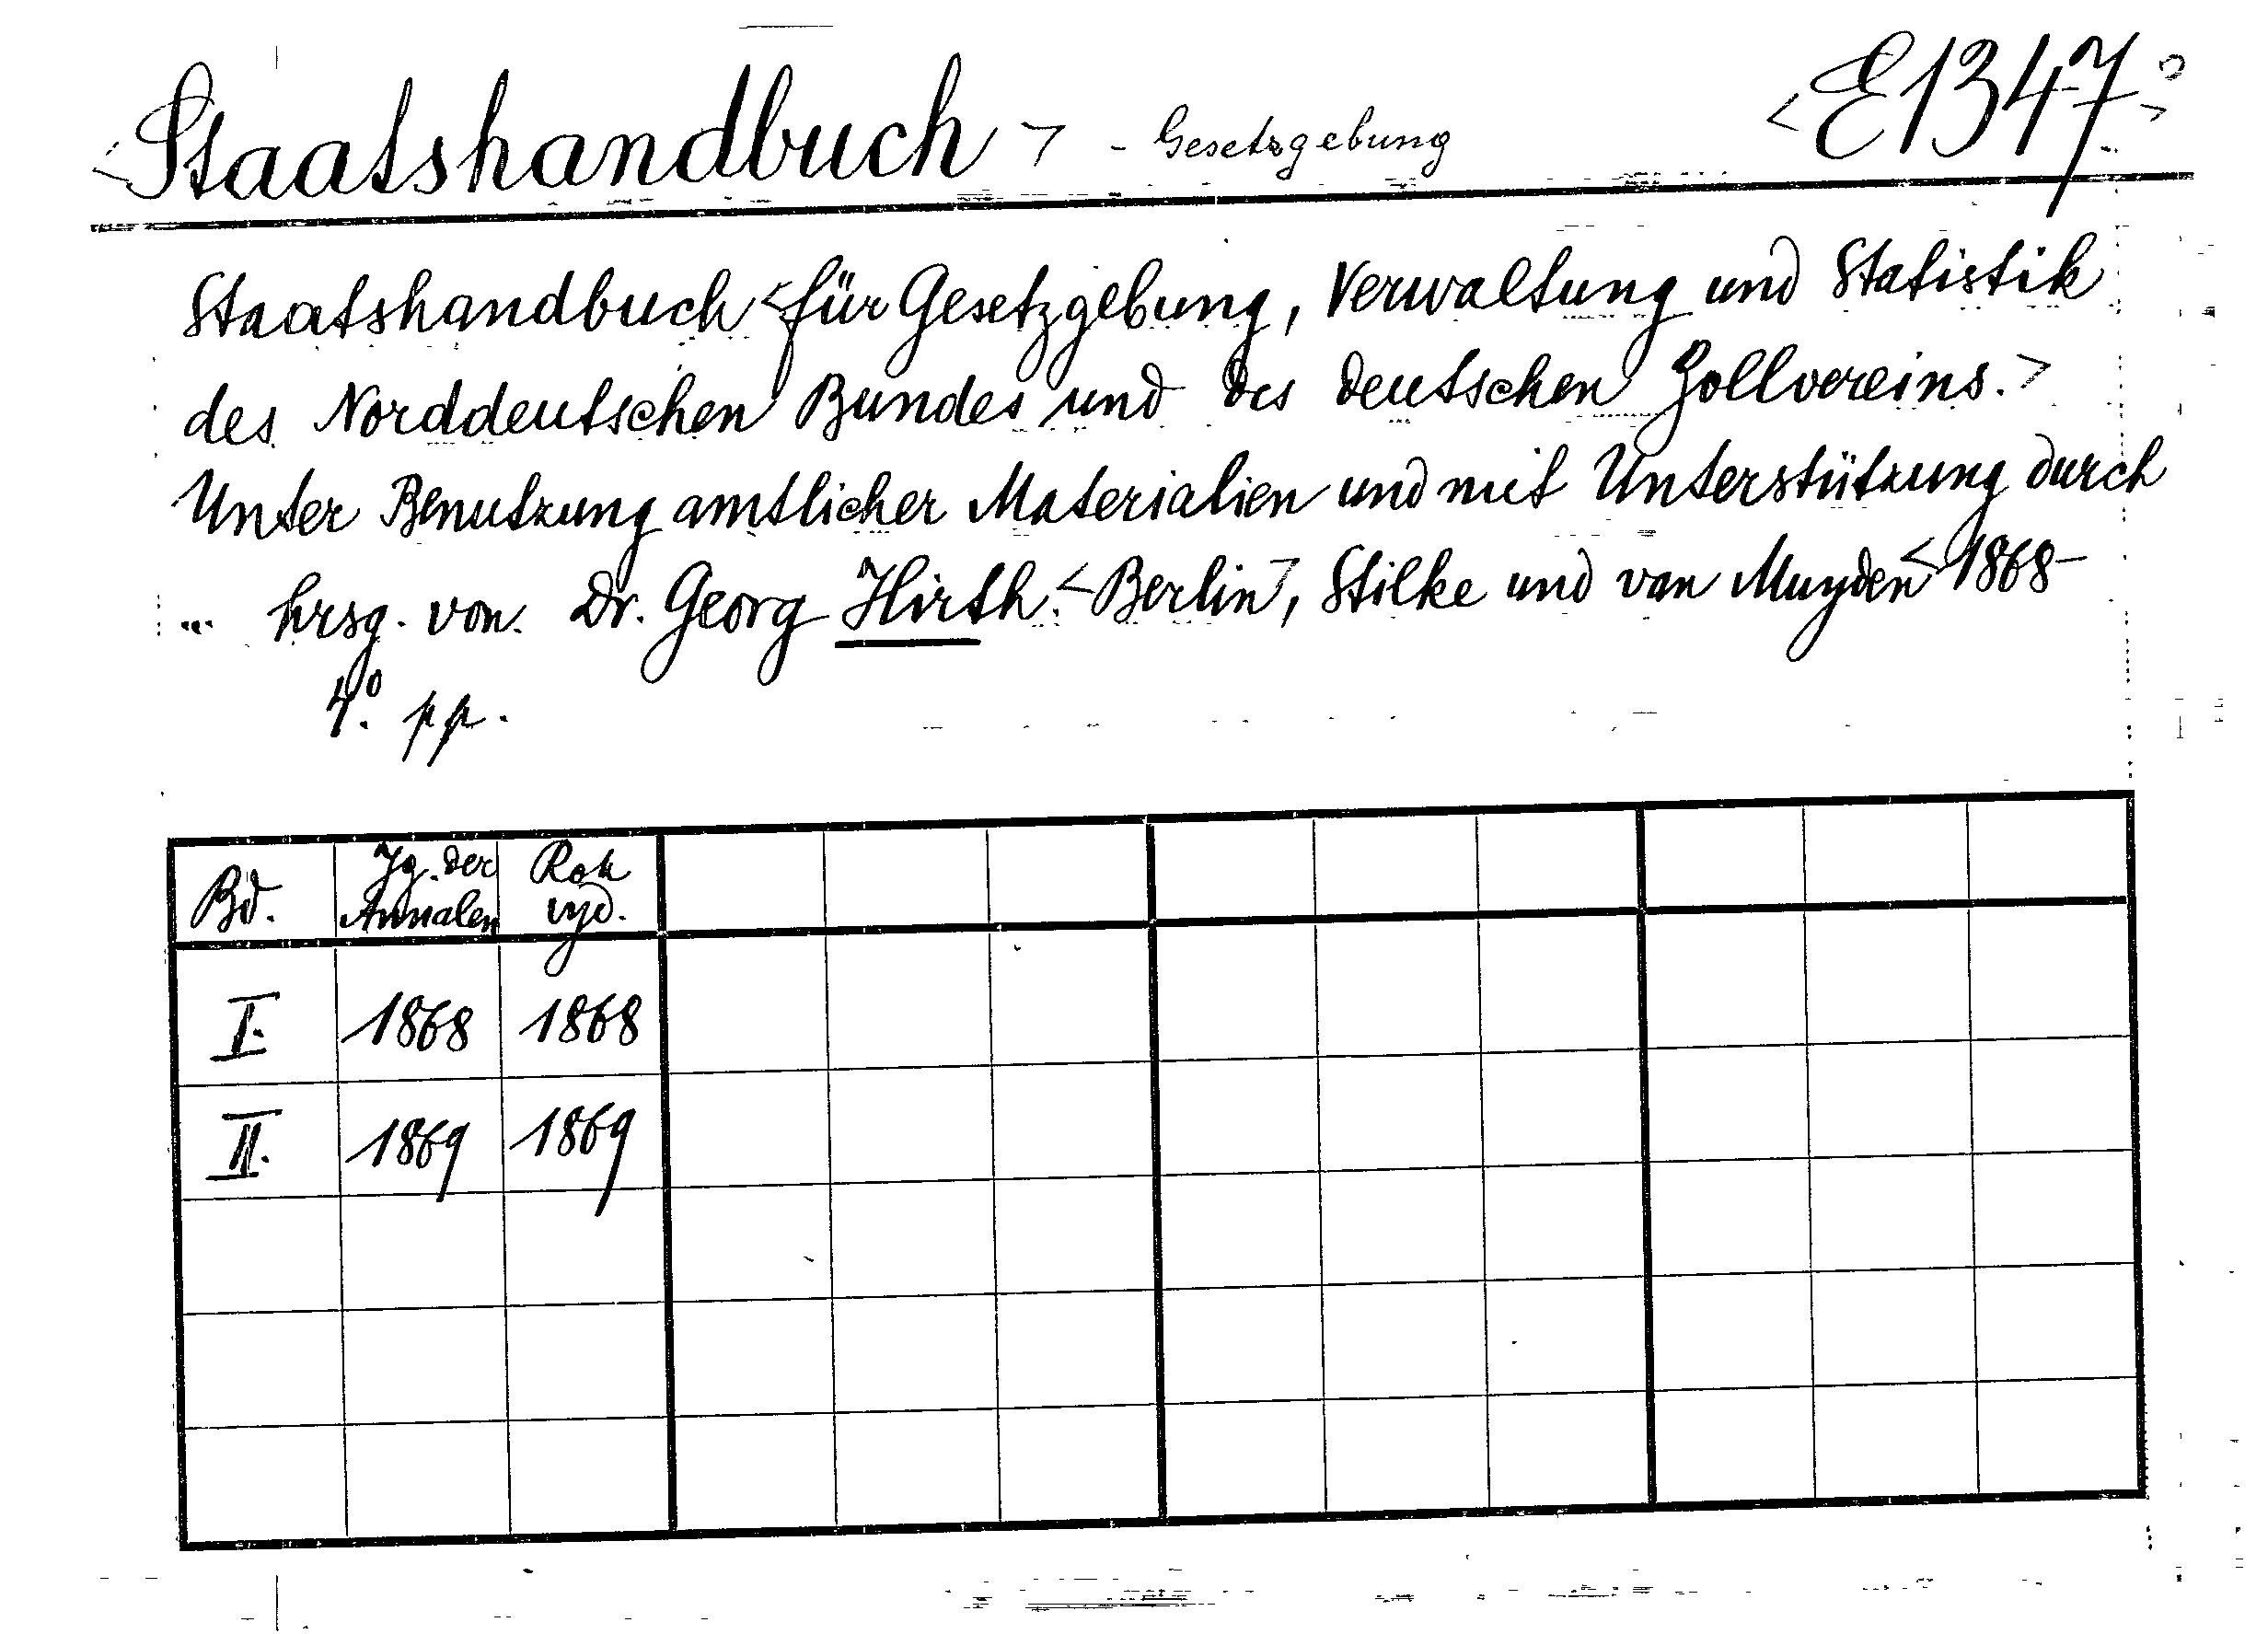 <Staatshandbuch> - Gesetzgebung <E1347>
Staatshandbuch <für Gesetzgebung, Verwaltung und Statistik
des Norddeutschen Bundes und des deutschen Zollvereins.>
Unter Benutzung amtlicher Materialien und mit Unterstützung durch
... hrsg. von Dr. Georg Hirth. <Berlin>, Stilke und van Muyden <1868-
4°. pp.
Bd. Jg. der Annalen Rok vyd.
I. 1868 1868
II. 1869 1869